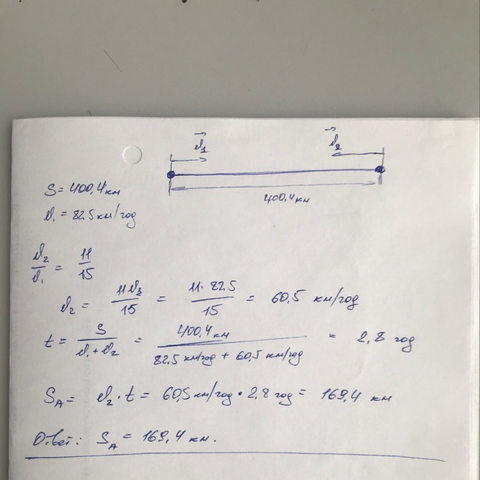 v₁ v₂
400,4 км
S = 400,4 км
v₁ = 82.5 км/год
v₂/v₁ = 11/15
v₂ = 11v₁/15 = 11·82.5/15 = 60,5 км/год
t = S/v₁+v₂ = 400,4 км/82.5 км/год + 60,5 км/год = 2,8 год
SA = v₂·t = 60,5 км/год · 2,8 год = 169,4 км
Ответ: SA = 169,4 км.